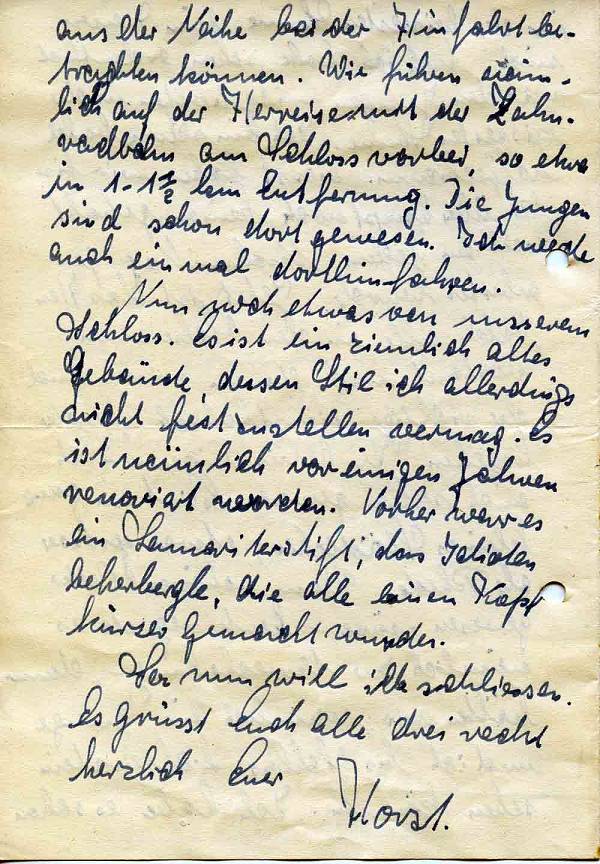 aus der Nähe bei der Hinfahrt be-
trachten können. Wir fuhren näm-
lich auf der Herreise mit der Zahn-
radbahn am Schloss vorbei, so etwa
in 1-1½ km Entfernung. Die Jungen
sind schon dort gewesen. Ich werde
auch einmal dorthin fahren.
Nun noch etwas von unserem
Schloss. Es ist ein ziemlich altes
Gebäude, dessen Stil ich allerdings
nicht festzustellen vermag. Es
ist nämlich vor einigen Jahren
renoviert worden. Vorher war es
ein Samariterstift, das Idioten
beherbergte, die alle einen Kopf
kürzer gemacht wurden.
So nun will ich schliessen.
Es grüsst Euch alle drei recht
herzlich Euer
Horst.